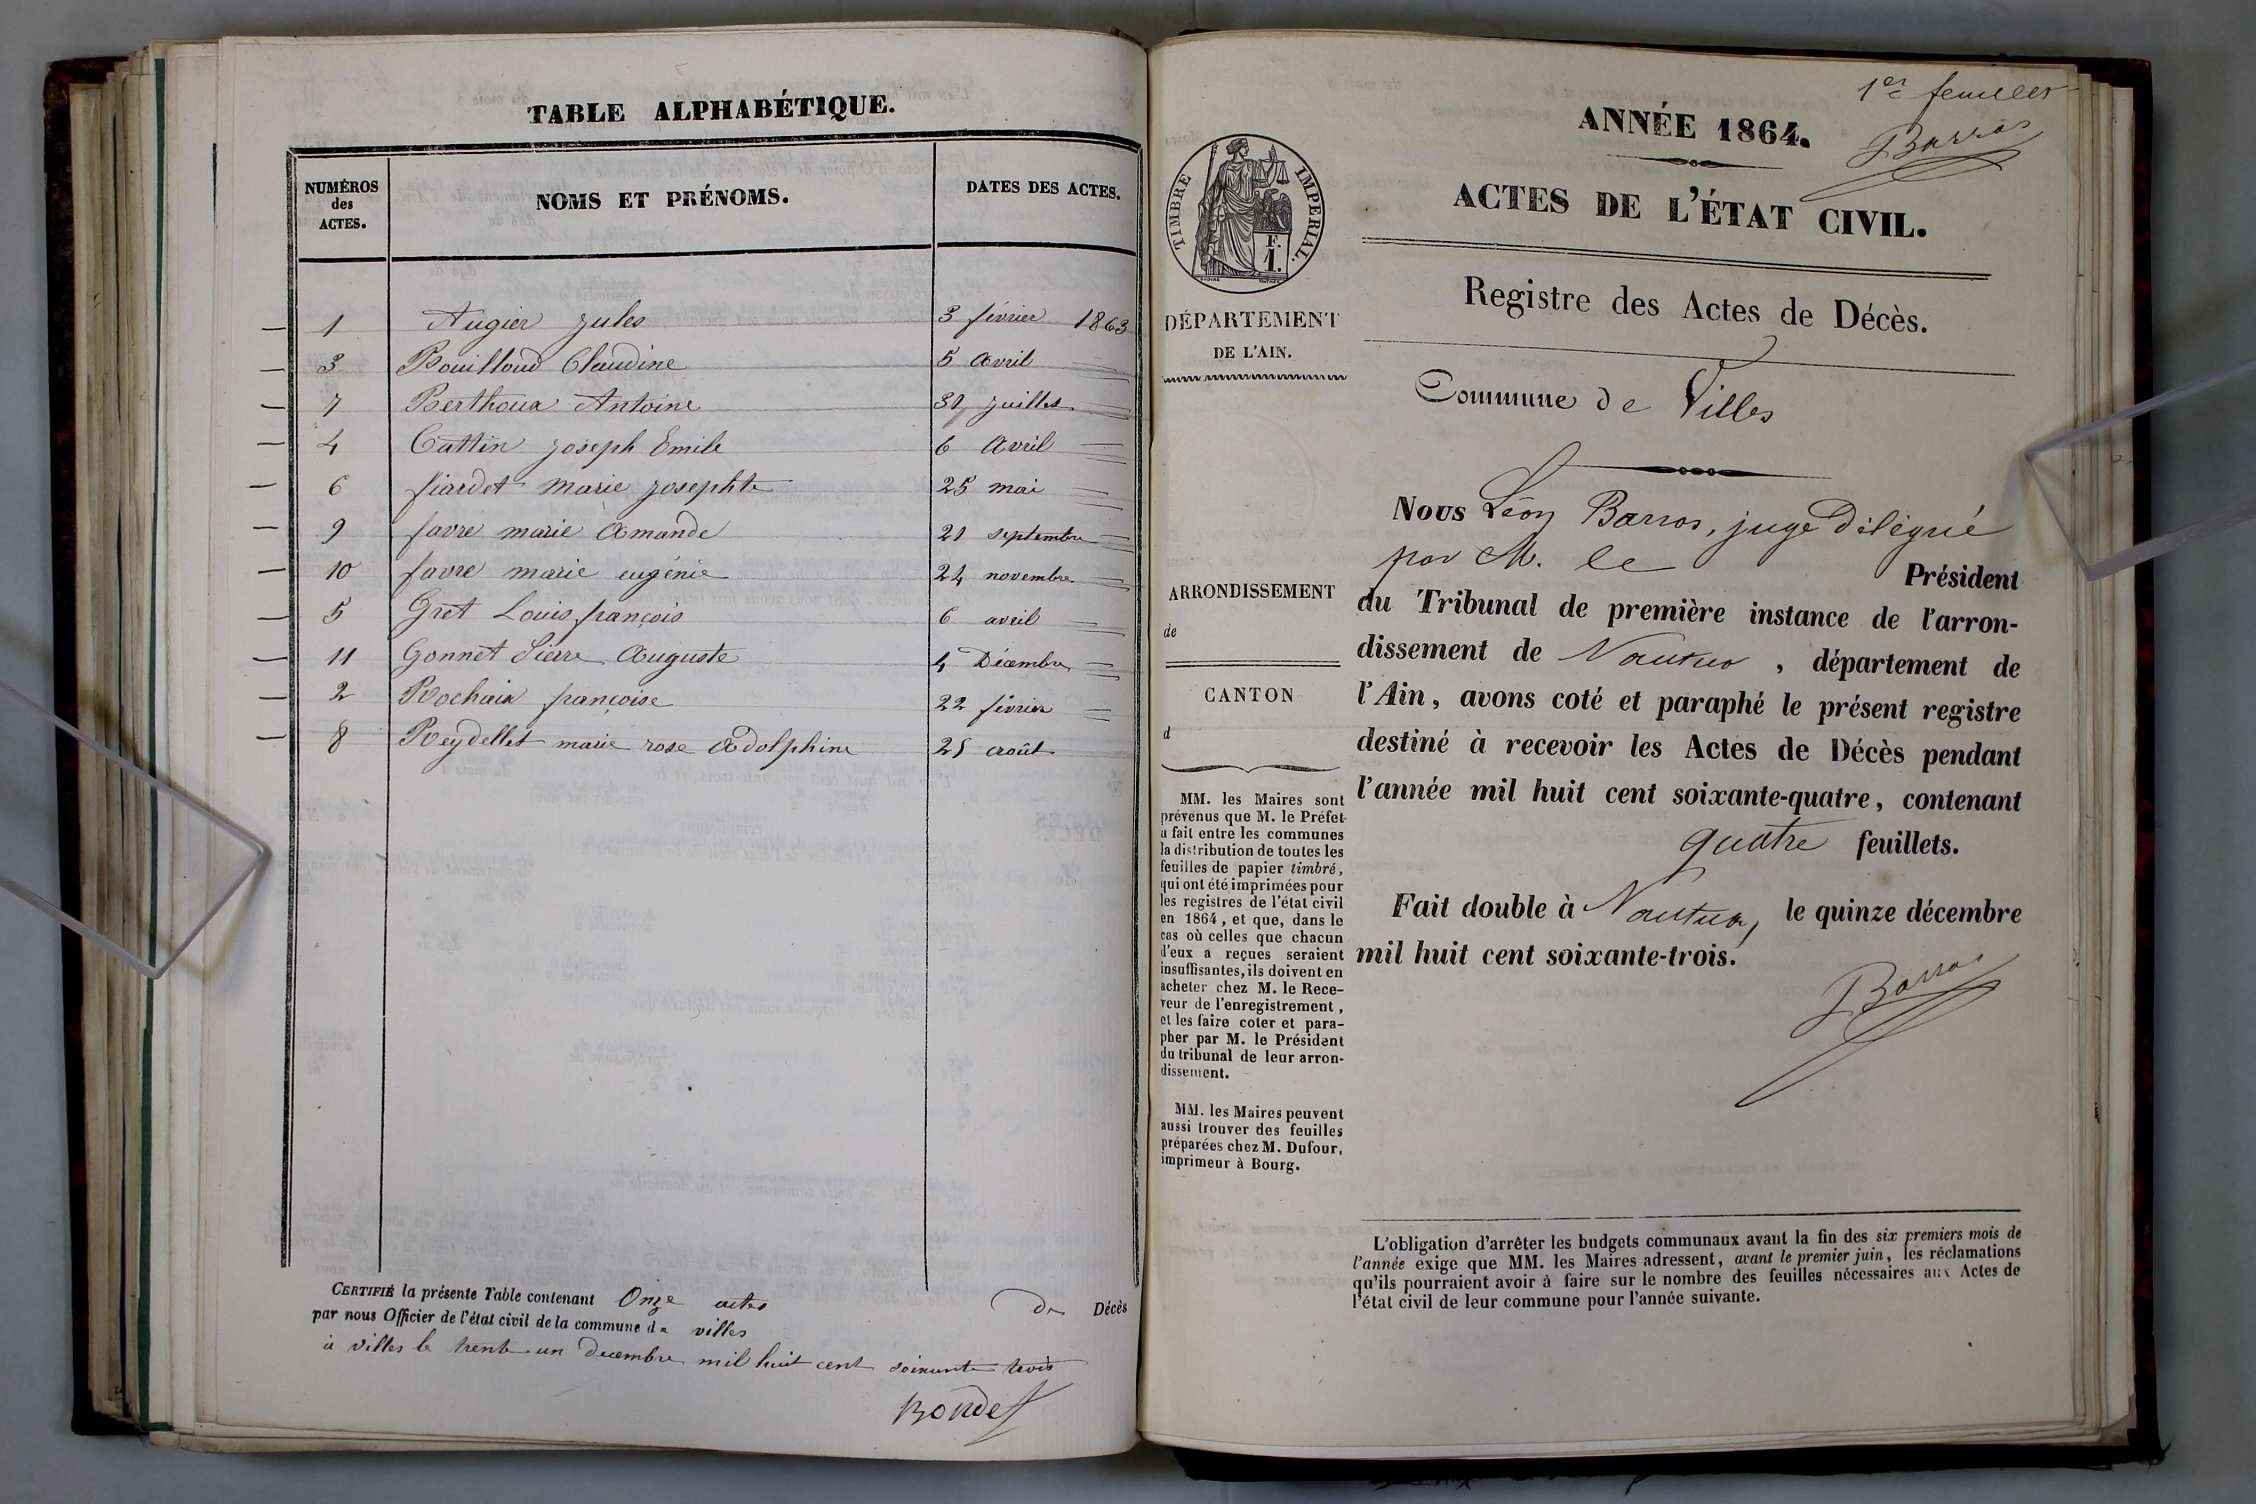 TABLE ALPHABÉTIQUE.
NUMÉROS des ACTES. NOMS ET PRÉNOMS. DATES DES ACTES.
1 Augier Jules 3 février 1863
3 Bouilloud Claudine 5 Avril
7 Berthoux Antoine 31 juillet
4 Cattin Joseph Emile 6 Avril
6 fiardet marie Josephte 25 mai
9 favre marie Amande 21 septembre
10 favre marie eugénie 24 novembre
5 Gret Louis françois 6 avril
11 Gonnet Pierre Auguste 4 Décembre
2 Rochaix françoise 22 février
8 Reydellet marie rose Adolphine 25 août
CERTIFIÉ la présente Table contenant Onze actes de Décès
par nous Officier de l'état civil de la commune de villes
à villes le trente un Decembre mil huit cent soixante trois
Bondet
1er feuillet
Barros
ANNÉE 1864.
ACTES DE L'ÉTAT CIVIL.
TIMBRE IMPERIAL.
F.
1.
Registre des Actes de Décès.
DÉPARTEMENT
DE L'AIN.
Commune de Villes
Nous Léon Barros, juge Délégué
par M. le Président
du Tribunal de première instance de l'arron-
dissement de Nantua, département de
l'Ain, avons coté et paraphé le présent registre
destiné à recevoir les Actes de Décès pendant
l'année mil huit cent soixante-quatre, contenant
quatre feuillets.
Fait double à Nantua, le quinze décembre
mil huit cent soixante-trois.
Barros
ARRONDISSEMENT
de
CANTON
d
MM. les Maires sont
prévenus que M. le Préfet
a fait entre les communes
la distribution de toutes les
feuilles de papier timbré,
qui ont été imprimées pour
les registres de l'état civil
en 1864, et que, dans le
cas où celles que chacun
d'eux a reçues seraient
insuffisantes, ils doivent en
acheter chez M. le Rece-
veur de l'enregistrement,
et les faire coter et para-
pher par M. le Président
du tribunal de leur arron-
dissement.
MM. les Maires peuvent
aussi trouver des feuilles
préparées chez M. Dufour,
imprimeur à Bourg.
L'obligation d'arrêter les budgets communaux avant la fin des six premiers mois de
l'année exige que MM. les Maires adressent, avant le premier juin, les réclamations
qu'ils pourraient avoir à faire sur le nombre des feuilles nécessaires aux Actes de
l'état civil de leur commune pour l'année suivante.